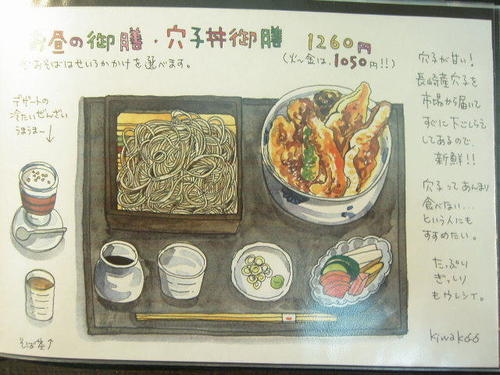 お昼の御膳・穴子丼御膳 1260円
(火〜金は、1050円!!)
※おそばはせいろかかけを選べます。
デザートの
冷たいぜんざい
うまうま〜
そば茶↑
穴子が甘い!
長崎産穴子を
市場から届いて
すぐに下ごしらえ
してあるので、
新鮮!!
穴子ってあんまり
食べない…
という人にも
すすめたい。
たっぷり
ぎっしり
もウレシイ。
kiwakoo